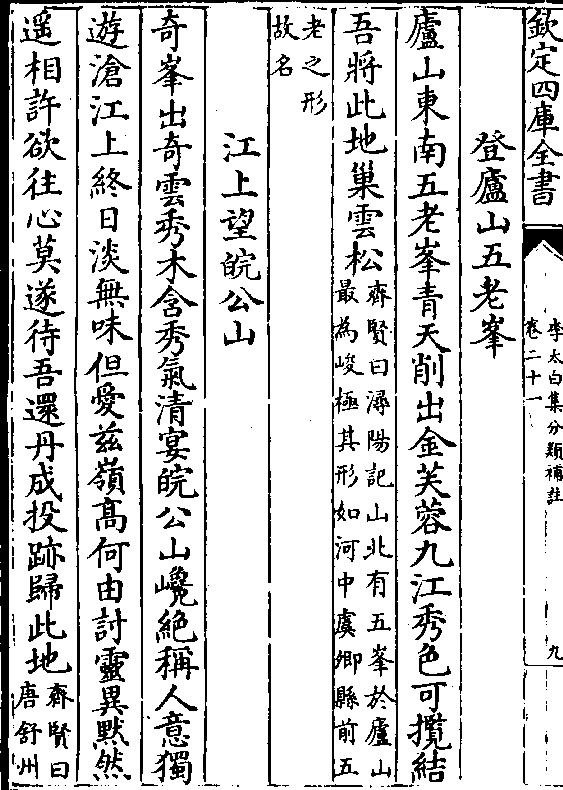 欽定四庫全書
李太白集分類補註
卷二十一
九
登廬山五老峯
廬山東南五老峯青天削出金芙蓉九江秀色可攬結
吾將此地巢雲松
齊賢曰潯陽記山北有五峯於廬山
最為峻極其形如河中虞鄉縣前五
老之形
故名
江上望皖公山
奇峯出奇雲秀木含秀氣清宴皖公山巉絶稱人意獨
遊滄江上終日淡無味但愛兹嶺髙何由討靈異黙然
遥相許欲往心莫遂待吾還丹成投跡歸此地
齊賢曰
唐舒州